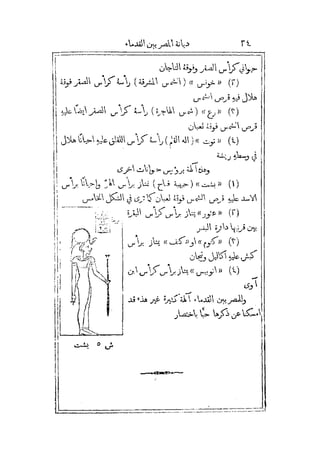 ٣٤ ديانة المصريين القدماء
حوراني كرأس الصقر وفوقه التاجان
(٢) «خونس» (الشمس المشرقة) رأسه كرأس الصقر فوقه
هلال فيه قرص الشمس
(٣) «رع» (شمس الهاجرة) رأسه كرأس الصقر ايضا عليه
قرص الشمس فوقه ثعبان
(٤) «توت» (اله القلم) رأسه كرأس اللقلق عليه احيانًا هلال
في وسطه ريشة
وهذه آلهة برؤوس حيوانات اخرى
(١) «بشت» (حبيبة فتاح) تمتاز برأس الهر واحيانًا برأس
الاسد عليه قرص الشمس فوقه ثعبان كما ترى في الشكل الخامس
(٢) «هتور» يمتاز برأس كرأس البقرة
بين قرنيها دائرة البدر
(٣) «كنوم» او «كنف» يمتاز برأس
كبش عليه اكاليل وتيجان
(٤) «انوبيس» يمتاز برأس كرأس ابن
آوى
وللمصريين القدماء آلهة كثيرة غير هذه قد
امسكنا عن ذكرها حبًّا باختصار
ش ٥ بشت